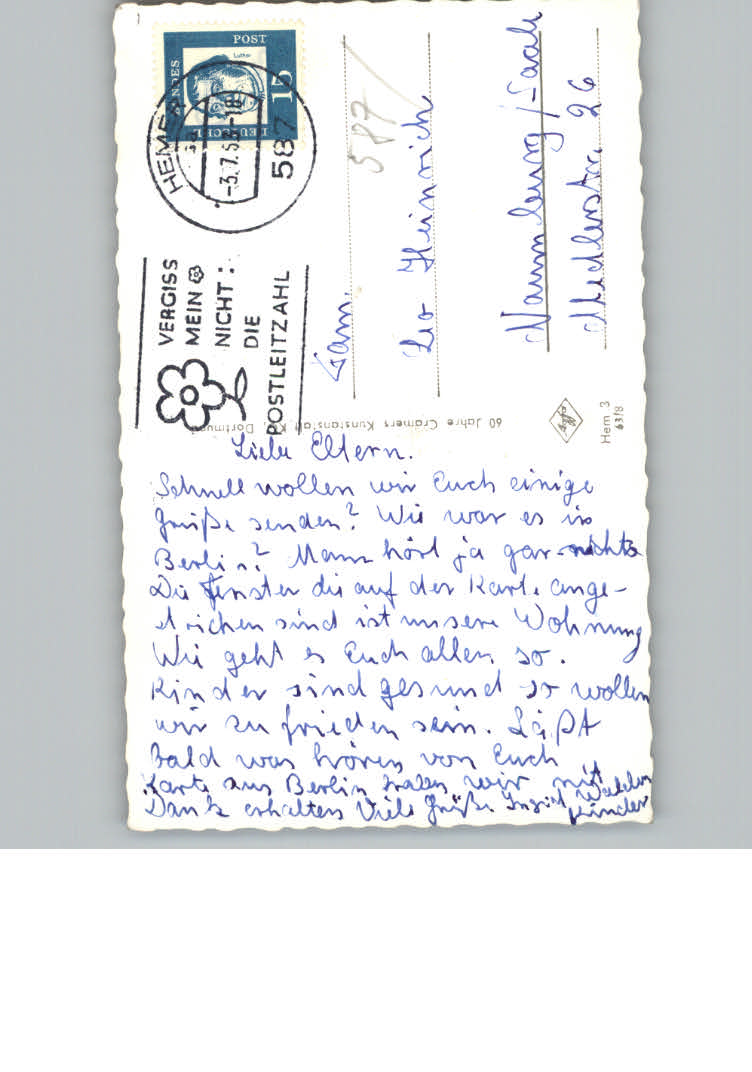 Liebe Eltern.
Schnell wollen wir Euch einige
Grüße senden? Wie war es in
Berlin? Mann hört ja gar-nichts
Die Fenster die auf der Karte ange-
strichen sind ist unsere Wohnung
Wie geht es Euch allen so.
Kinder sind gesund so wollen
wir zufrieden sein. Laßt
bald was hören von Euch
Karte aus Berlin haben wir mit
Dank erhalten Viele Grüße Ingrid,
Kinder
POST
Luther
15
HEMER
-3.7.6
-18
587
VERGISS
MEIN
NICHT:
DIE
POSTLEITZAHL
587
Fam.
Leo Heinrich
Naumburg/Saale
26
60 Jahre Cramers Kunstanstalt KG, Dortmund
Agfa
Hem 3
63/8